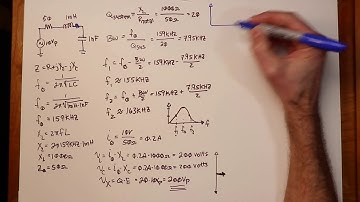 5Ω 1mH
10Vp
1nF
Z = R + jXL - jXC
f₀ = 1 / 2π√LC
f₀ = 1 / 2π√1mH·1nF
f₀ = 159KHz
XL = 2πfL
XL = 2π·159KHz·1mH
XL = 1000Ω
Z₀ = 50Ω
Qsystem = XL / Rtotal = 1000Ω / 50Ω = 20
BW = f₀ / Qsys = 159KHz / 20 = 7.95KHz
f₁ = f₀ - BW/2 = 159KHz - 7.95KHz/2
f₁ ≈ 155KHz
f₂ = f₀ + BW/2 = 159KHz + 7.95KHz/2
f₂ ≈ 163KHz
f₁ f₀ f₂ f
i₀ = 10V / 50Ω = 0.2A
V = i₀·XL = 0.2A·1000Ω = 200 volts
V = i₀·XC = 0.2A·1000Ω = 200 volts
VX = Q·E = 20·10Vp = 200Vp